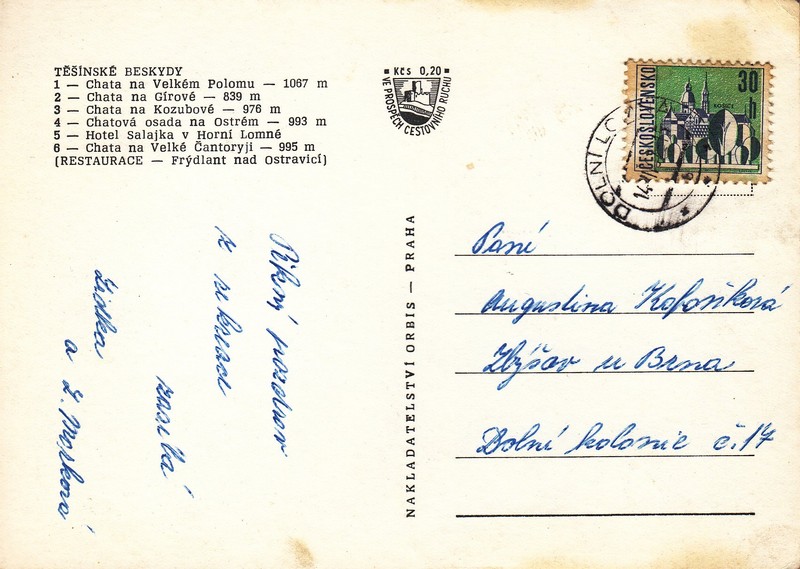 TĚŠÍNSKÉ BESKYDY
1 — Chata na Velkém Polomu — 1067 m
2 — Chata na Gírové — 839 m
3 — Chata na Kozubové — 976 m
4 — Chatová osada na Ostrém — 993 m
5 — Hotel Salajka v Horní Lomné
6 — Chata na Velké Čantoryji — 995 m
(RESTAURACE — Frýdlant nad Ostravicí)
Kčs 0,20
VE PROSPĚCH CESTOVNÍHO RUCHU
ČESKOSLOVENSKO
30 h
KOŠICE
DOLNÍ LOMNÁ
NAKLADATELSTVÍ ORBIS — PRAHA
Paní
Augustina
Zbýšov u Brna
Dolní kolonie č. 17
Pěkný pozdrav
z
zasílá
Zdeňka
a